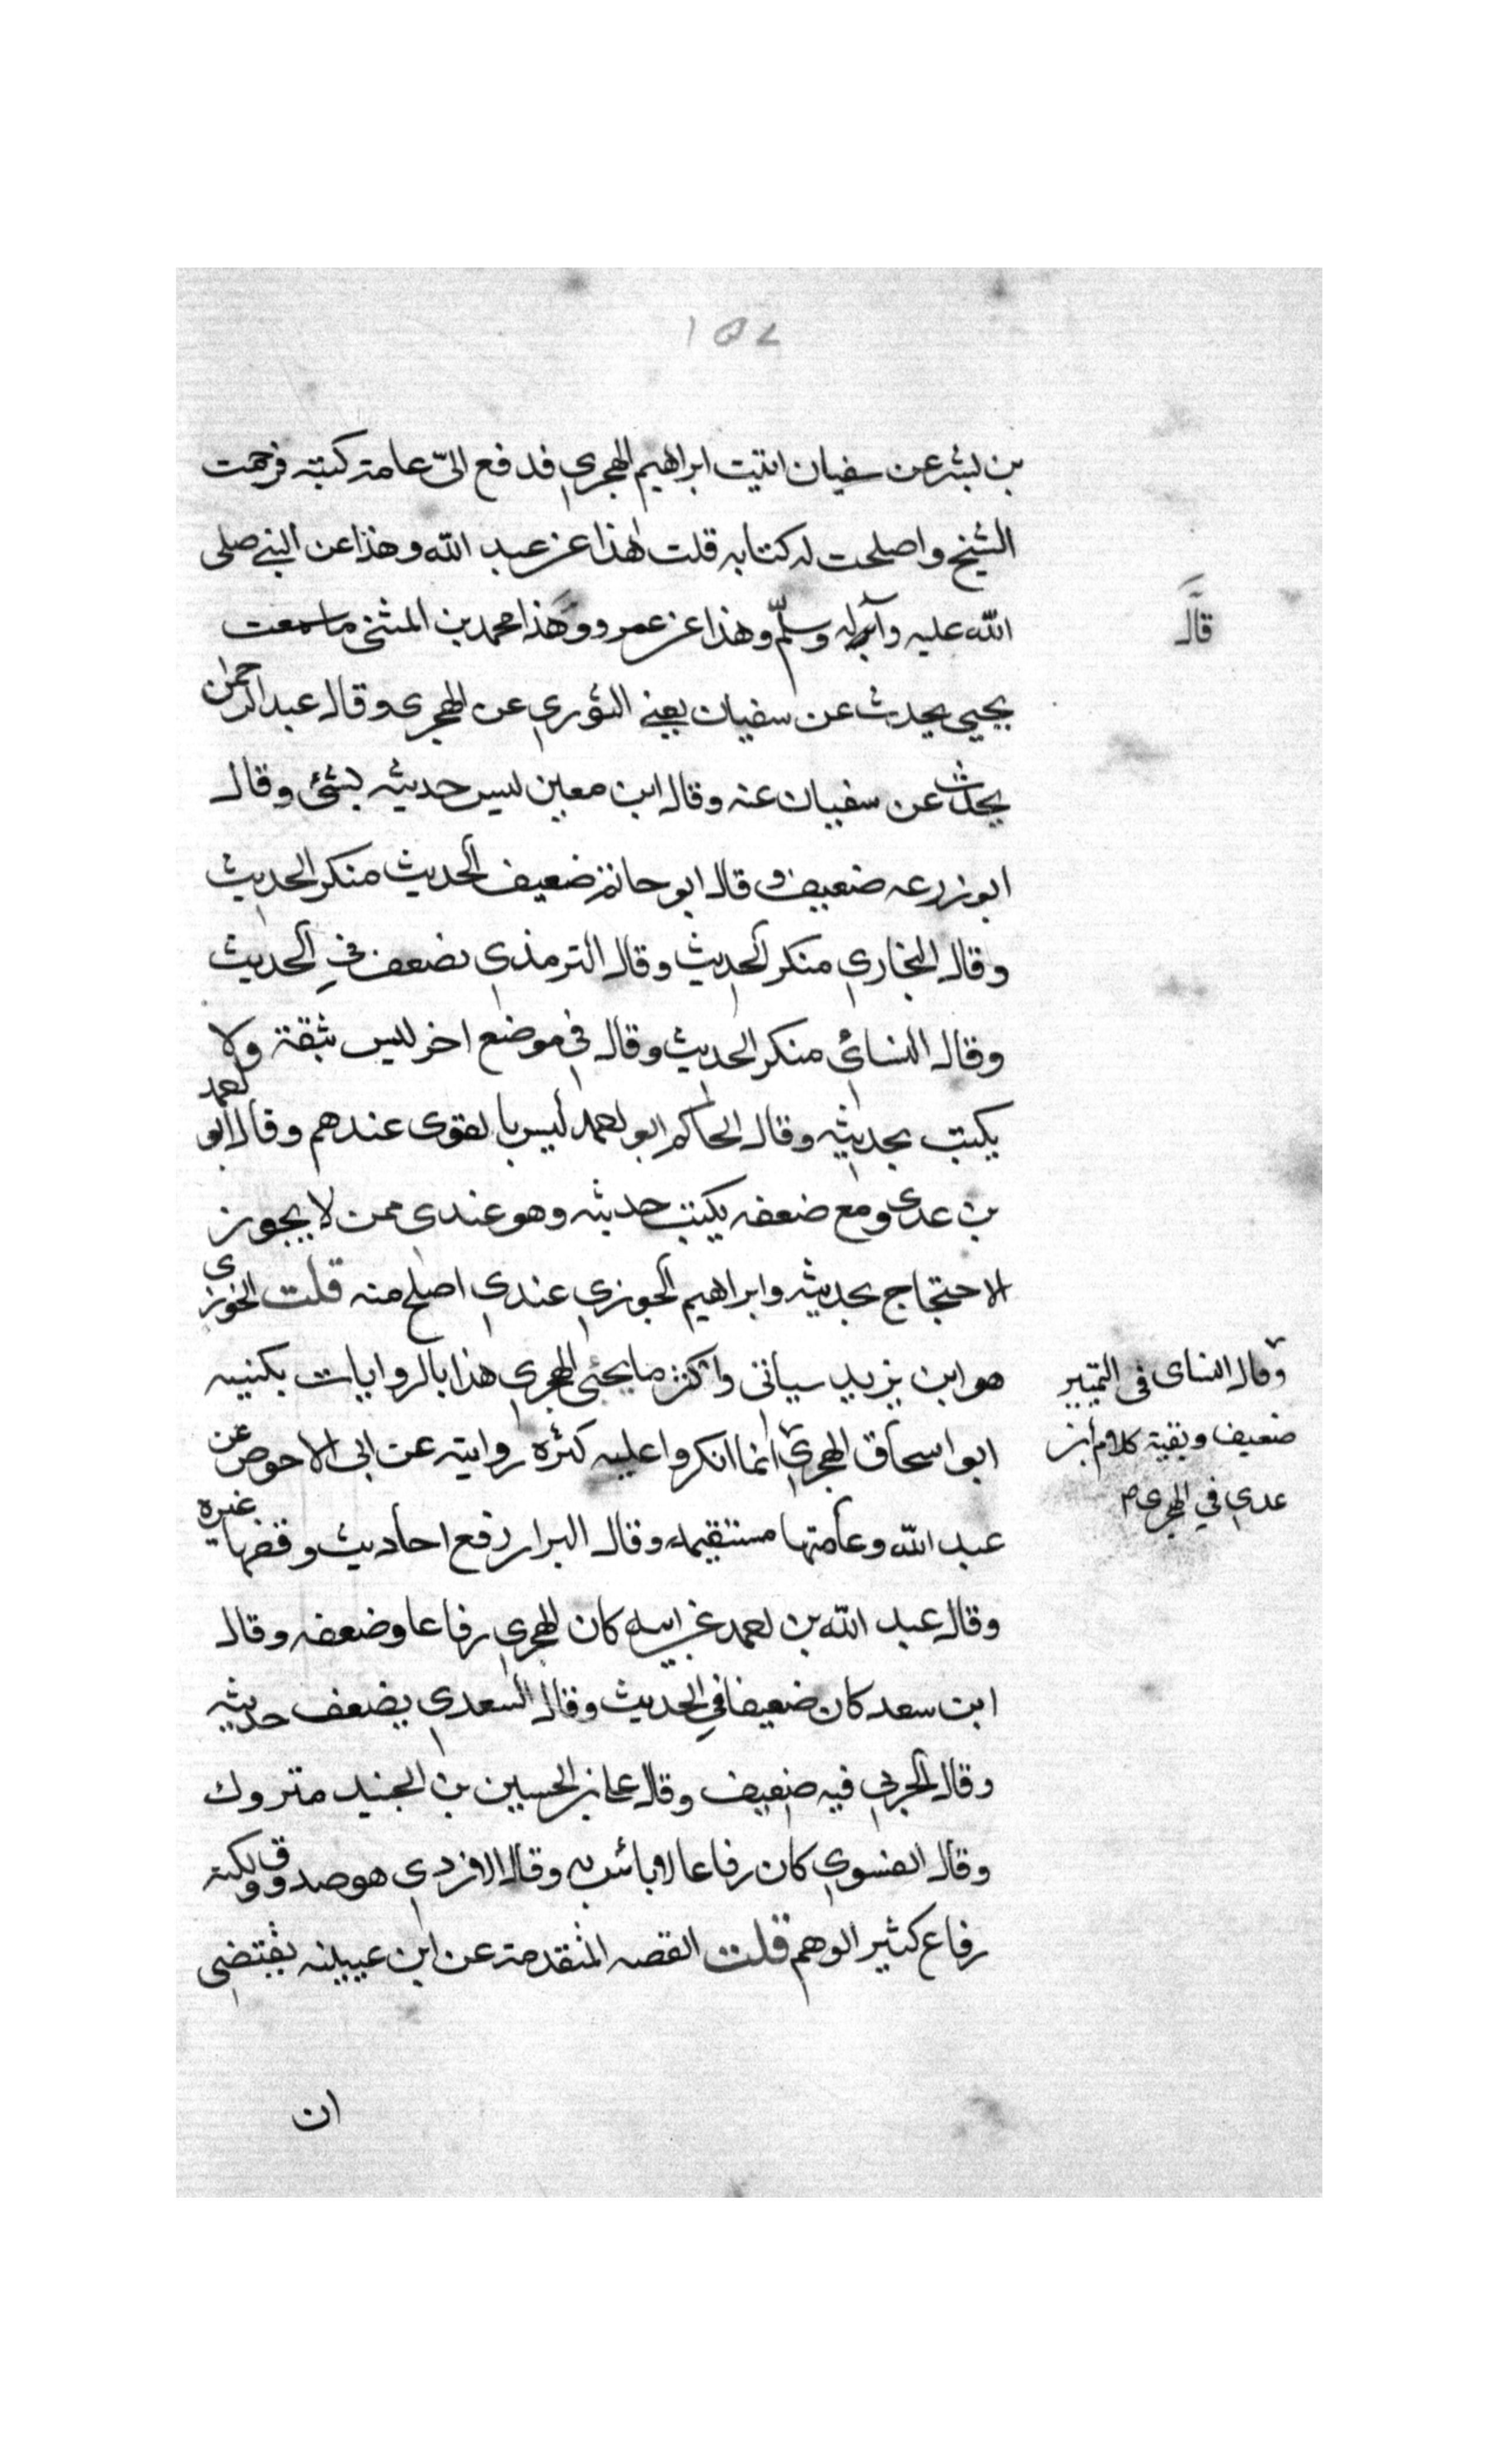 ١٥٧
بن بشر عن سفيان اتيت ابراهيم الهجري فدفع الىّ عامة كتبه فرحمت
الشيخ واصلحت له كتابه قلت هذا عن عبد الله وهذا عن النبي صلى
الله عليه وآله وسلّم وهذا عن عمرو وهذا محمد بن المثنى ما سمعت
قال
يحيي يحدث عن سفيان يعني الثوري عن الهجري وقال عبد الرحمن
يحدث عن سفيان عنه وقال ابن معين ليس حديثه بشئ وقال
ابو زرعه ضعيف وقال ابو حاتم ضعيف الحديث منكر الحديث
وقال البخاري منكر الحديث وقال الترمذي يضعف في الحديث
وقال النسائي منكر الحديث وقال في موضع اخر ليس بثقة ولا
يكتب بحديثه وقال الحاكم ابو احمد ليس بالقوى عندهم وقال ابو احمد
بن عدى ومع ضعفه يكتب حديثه وهو عندى ممن لا يجوز
الاحتجاج بحديثه وابراهيم الجوزي عندي اصلح منه قلت الخوزى
هو ابن يزيد سياتى واكثر ما يجئى الهجري هذا بالروايات بكنيته
وقال النساى فى التمييز
ضعيف وبقية كلام ابن
عدي في الهجرى م
ابو اسحاق الهجري انما انكروا عليه كثرة روايته عن ابى الاحوص عن
عبد الله وعامتها مستقيمه وقال البزار رفع احاديث وقفها غيره
وقال عبد الله بن احمد عن ابيه كان الهجري رفاعا وضعفه وقال
ابن سعد كان ضعيفا في الحديث وقال السعدي يضعف حديثه
وقال الحربي فيه ضعيف وقال على بن الحسين بن الجنيد متروك
وقال الفسوي كان رفاعا لا بائس به وقال الازدي هو صدوق ولكنه
رفاع كثير الوهم قلت القصه المتقدمة عن ابن عيينه يقتضي
ان